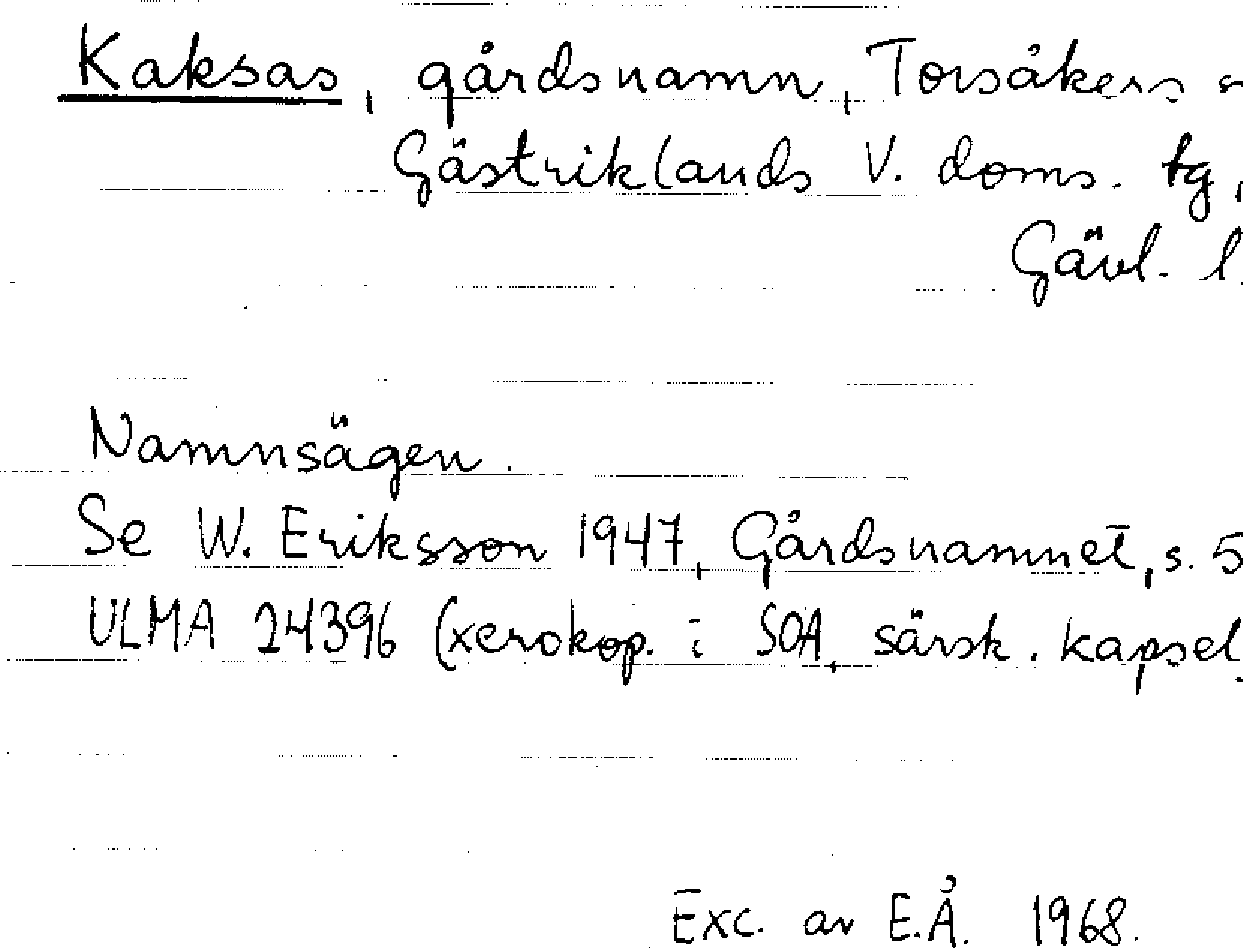 Kaksas, gårdsnamn, Torsåkers
Gästriklands V. doms. tg,
Gävl. l.
Namnsägen.
Se W. Eriksson 1947, Gårdsnamnet, s. 5
ULMA 24396 (xerokop. i SOA, särsk. kapsel
Exc. av E.Å. 1968.